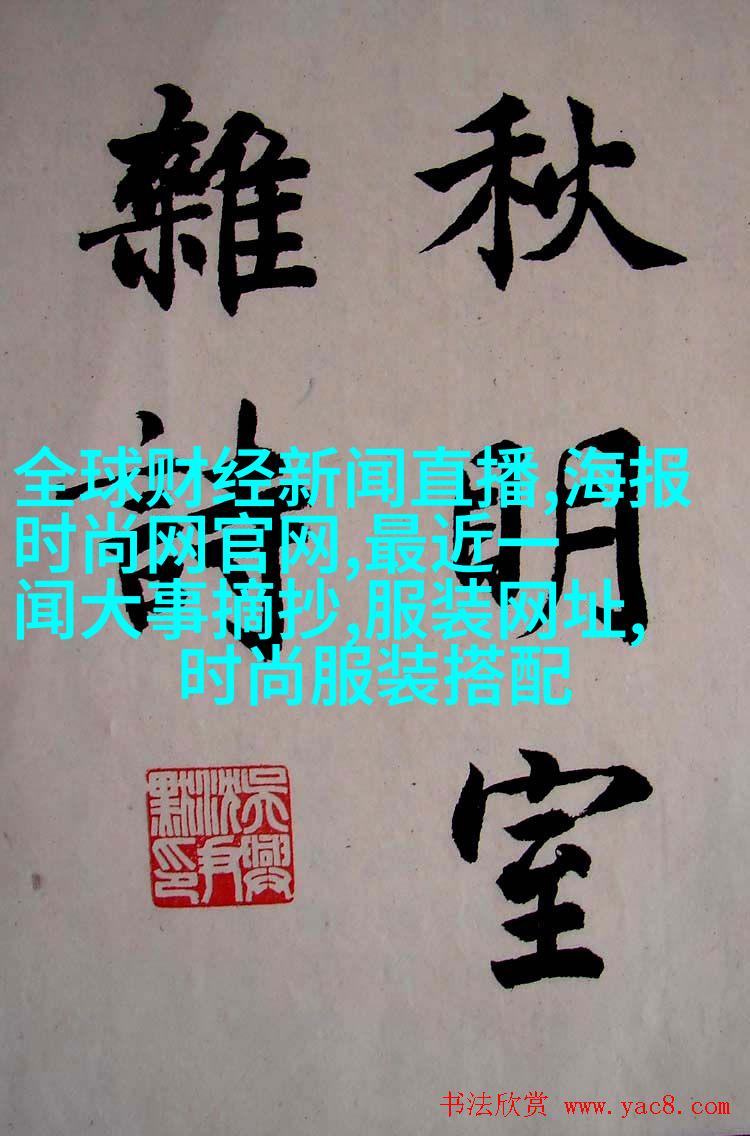 秋明室
雜詩
全球财经新闻直播,海报
时尚网官网,最近一
闻大事摘抄,服装网址,
时尚服装搭配
吳興
沈尹
默印
书法欣赏 www.yac8.com